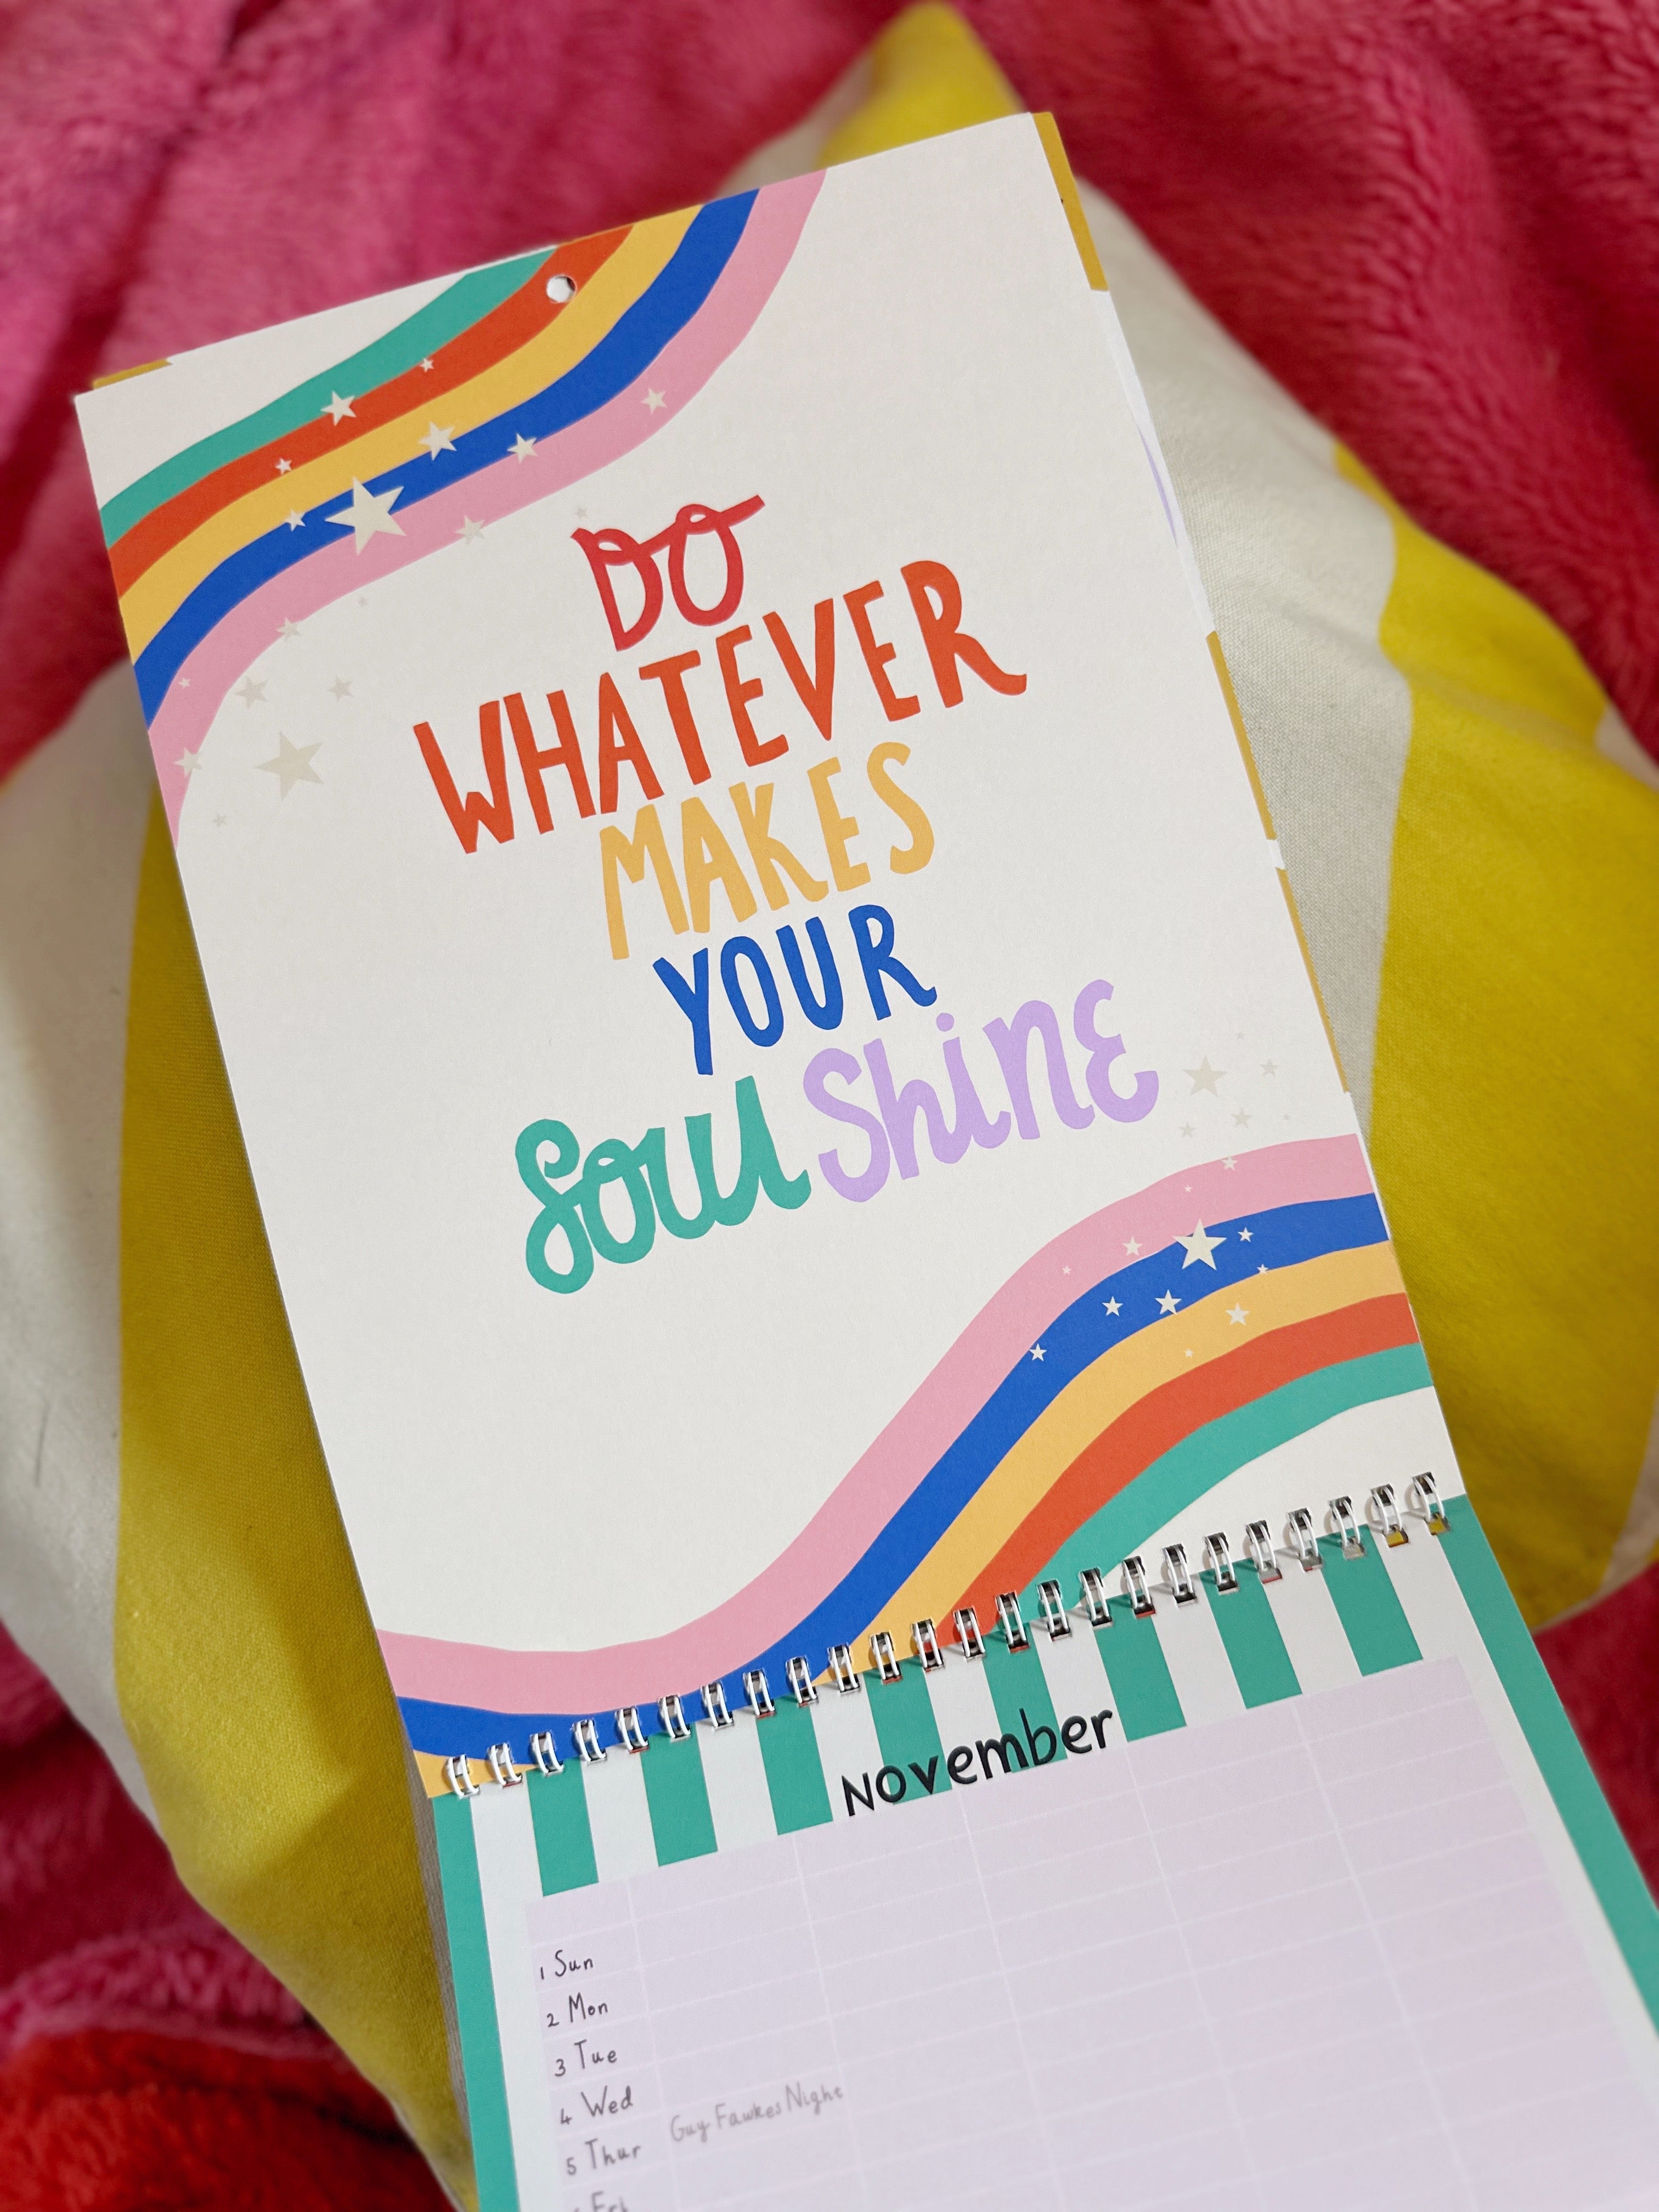 DO
WHATEVER
MAKES
YOUR
Soul Shine
November
1 Sun
2 Mon
3 Tue
4 Wed
5 Thur Guy Fawkes Night
Fri